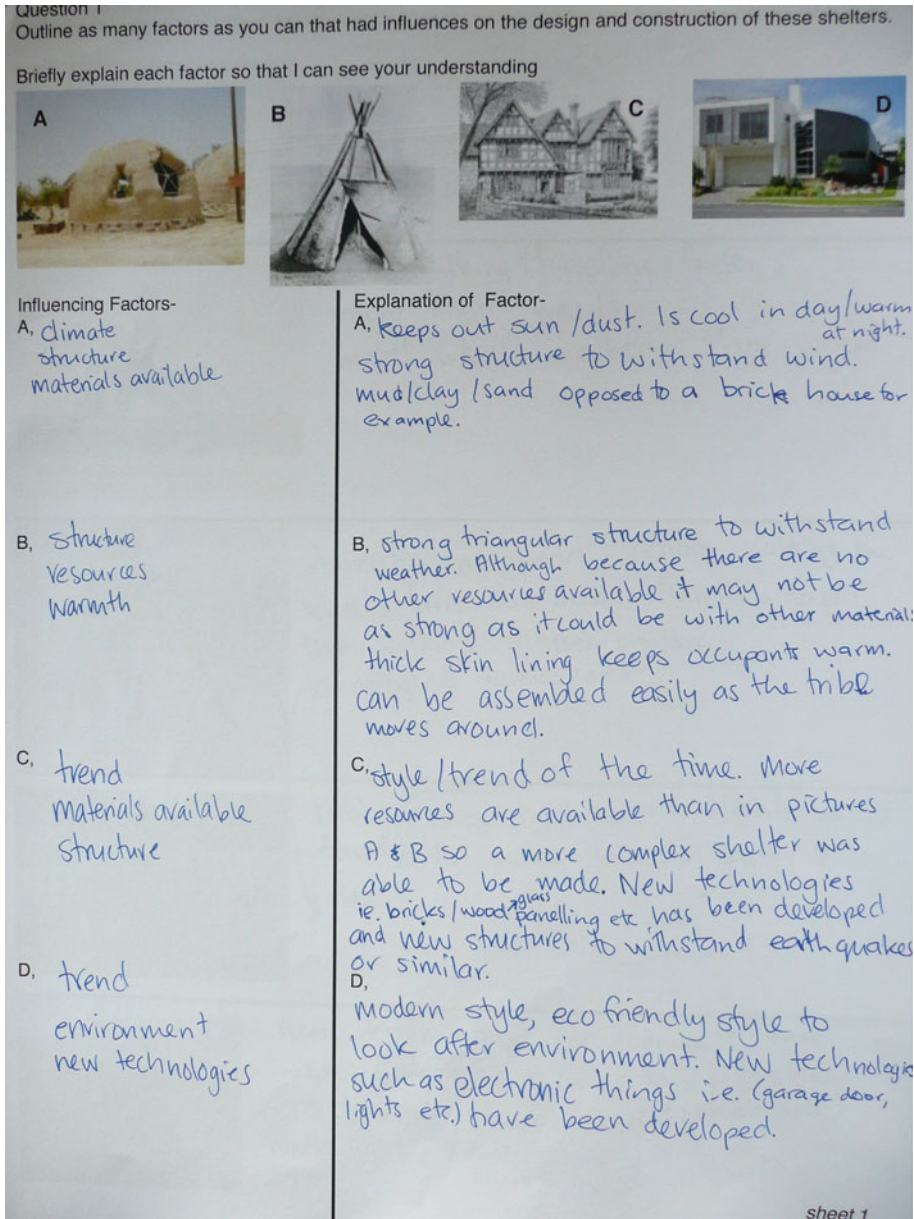 Question 1
Outline as many factors as you can that had influences on the design and construction of these shelters.
Briefly explain each factor so that I can see your understanding
A
B
C
D
Influencing Factors-
A, climate
structure
materials available
Explanation of Factor-
A, keeps out sun/dust. Is cool in day/warm
at night.
strong structure to withstand wind.
mud/clay/sand opposed to a brick house for
example.
B, structure
resources
warmth
B, strong triangular structure to withstand
weather. Although because there are no
other resources available it may not be
as strong as it could be with other materials
thick skin lining keeps occupants warm.
can be assembled easily as the tribe
moves around.
C, trend
materials available
structure
C, style/trend of the time. More
resources are available than in pictures
A & B so a more complex shelter was
able to be made. New technologies
ie. bricks/wood↗glass panelling etc has been developed
and new structures to withstand earthquakes
or similar.
D, trend
environment
new technologies
D,
modern style, eco friendly style to
look after environment. New technologie
such as electronic things i.e. (garage door,
lights etc.) have been developed.
sheet 1